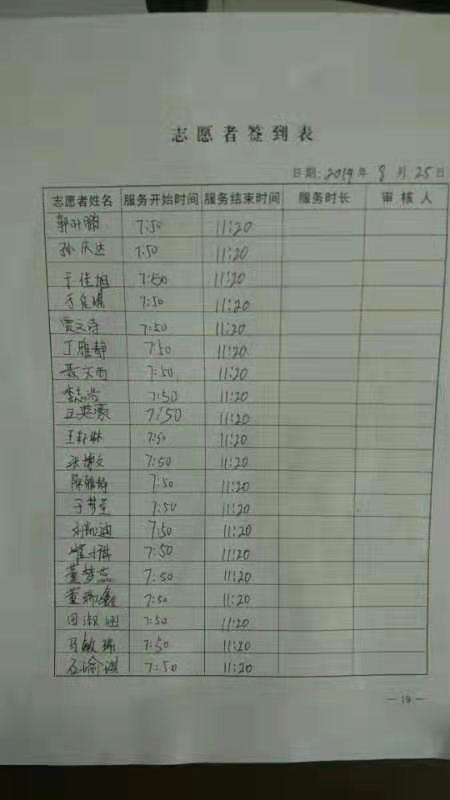 志愿者签到表
日期:2019年8月25日
志愿者姓名 服务开始时间 服务结束时间 服务时长 审核人
7:50 11:20
孙庆达 7:50 11:20
于佳旭 7:50 11:20
7:50 11:20
贾文诗 7:50 11:20
丁雅静 7:50 11:20
聂文雨 7:50 11:20
李志浩 7:50 11:20
王英豪 7:50 11:20
王 7:50 11:20
张博文 7:50 11:20
陈雅静 7:50 11:20
于梦 7:50 11:20
刘凯迪 7:50 11:20
崔 7:50 11:20
董梦 7:50 11:20
董 鑫 7:50 11:20
田淑 7:50 11:20
敏 7:50 11:20
石 7:50 11:20
— 19 —